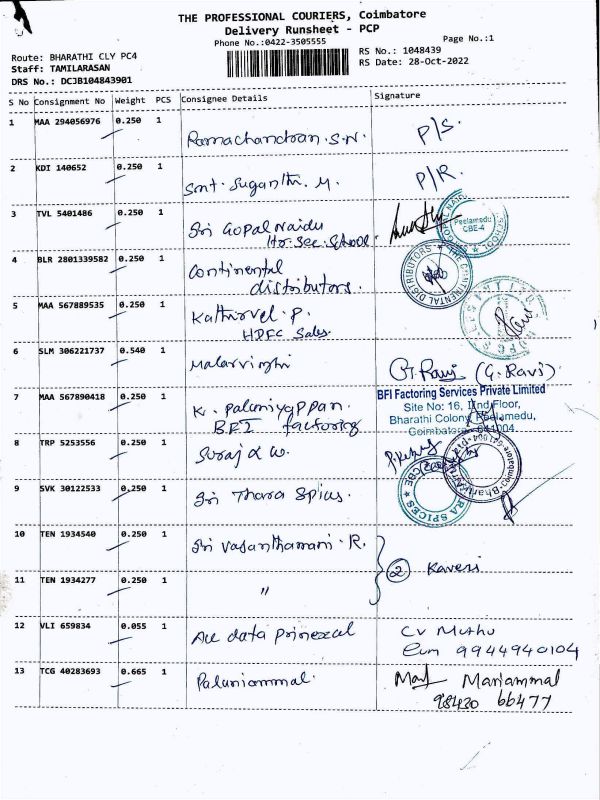 THE PROFESSIONAL COURIERS, Coimbatore
Delivery Runsheet - PCP
Phone No.:0422-3505555
Page No.:1
Route: BHARATHI CLY PC4
Staff: TAMILARASAN
DRS No.: DCJB104843901
RS No.: 1048439
RS Date: 28-Oct-2022
S No Consignment No Weight PCS Consignee Details Signature
1 MAA 294056976 0.250 1 Ramachandran. S.N. P/S.
2 KDI 140652 0.250 1 Smt. Suganthi. M. P/R.
3 TVL 5401486 0.250 1 Sri Gopal Naidu
Hr. Sec. School.
Peelamedu
CBE-4
4 BLR 2801339582 0.250 1 Continental
distributors.
THE CONTINENTAL DISTRIBUTORS
5 MAA 567889535 0.250 1 Kathirvel. P.
HDFC Sales
6 SLM 306221737 0.540 1 Malarvizhi G. Ravi (G. Ravi)
7 MAA 567890418 0.250 1 K. Palaniyappan.
BFI factoring
BFI Factoring Services Private Limited
Site No: 16, IInd Floor,
Bharathi Colony, Peelamedu,
Coimbatore - 641004.
8 TRP 5253556 0.250 1 Suraj
9 SVK 30122533 0.250 1 Sri Thara Spices.
10 TEN 1934540 0.250 1 Sri Vasanthamani. R.
2 Kaveri
11 TEN 1934277 0.250 1 "
12 VLI 659834 0.055 1 All data
CV Muthu
99449 40104
13 TCG 40283693 0.665 1 Palaniammal. Mariammal
98430 66477